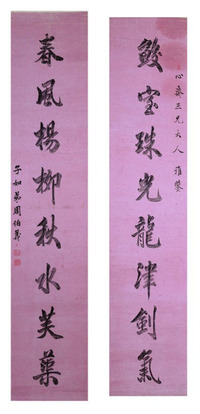 心齋三兄大人雅鑒
鮫室珠光龍津劍氣
春風楊柳秋水芙蕖
子如弟周伯義